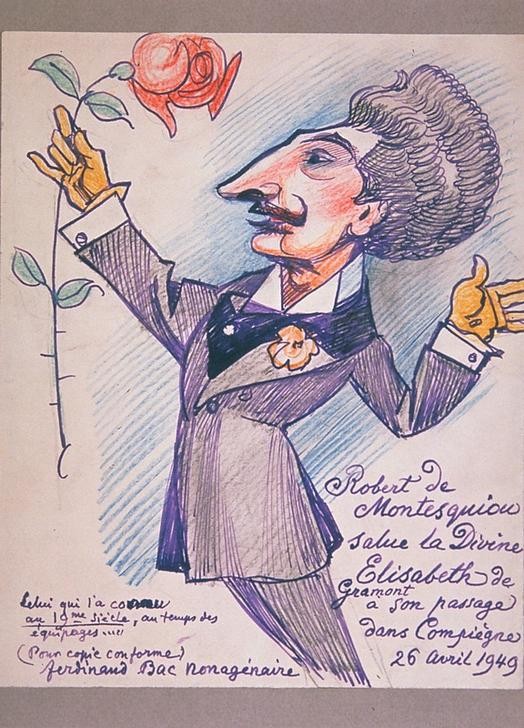 Robert de
Montesquiou
salue la Divine
Elisabeth de
Gramont
a son passage
dans Compiègne
26 avril 1949
Celui qui l'a connu
au 19me siècle, au temps des
équipages
(Pour copie conforme)
Ferdinand Bac nonagénaire